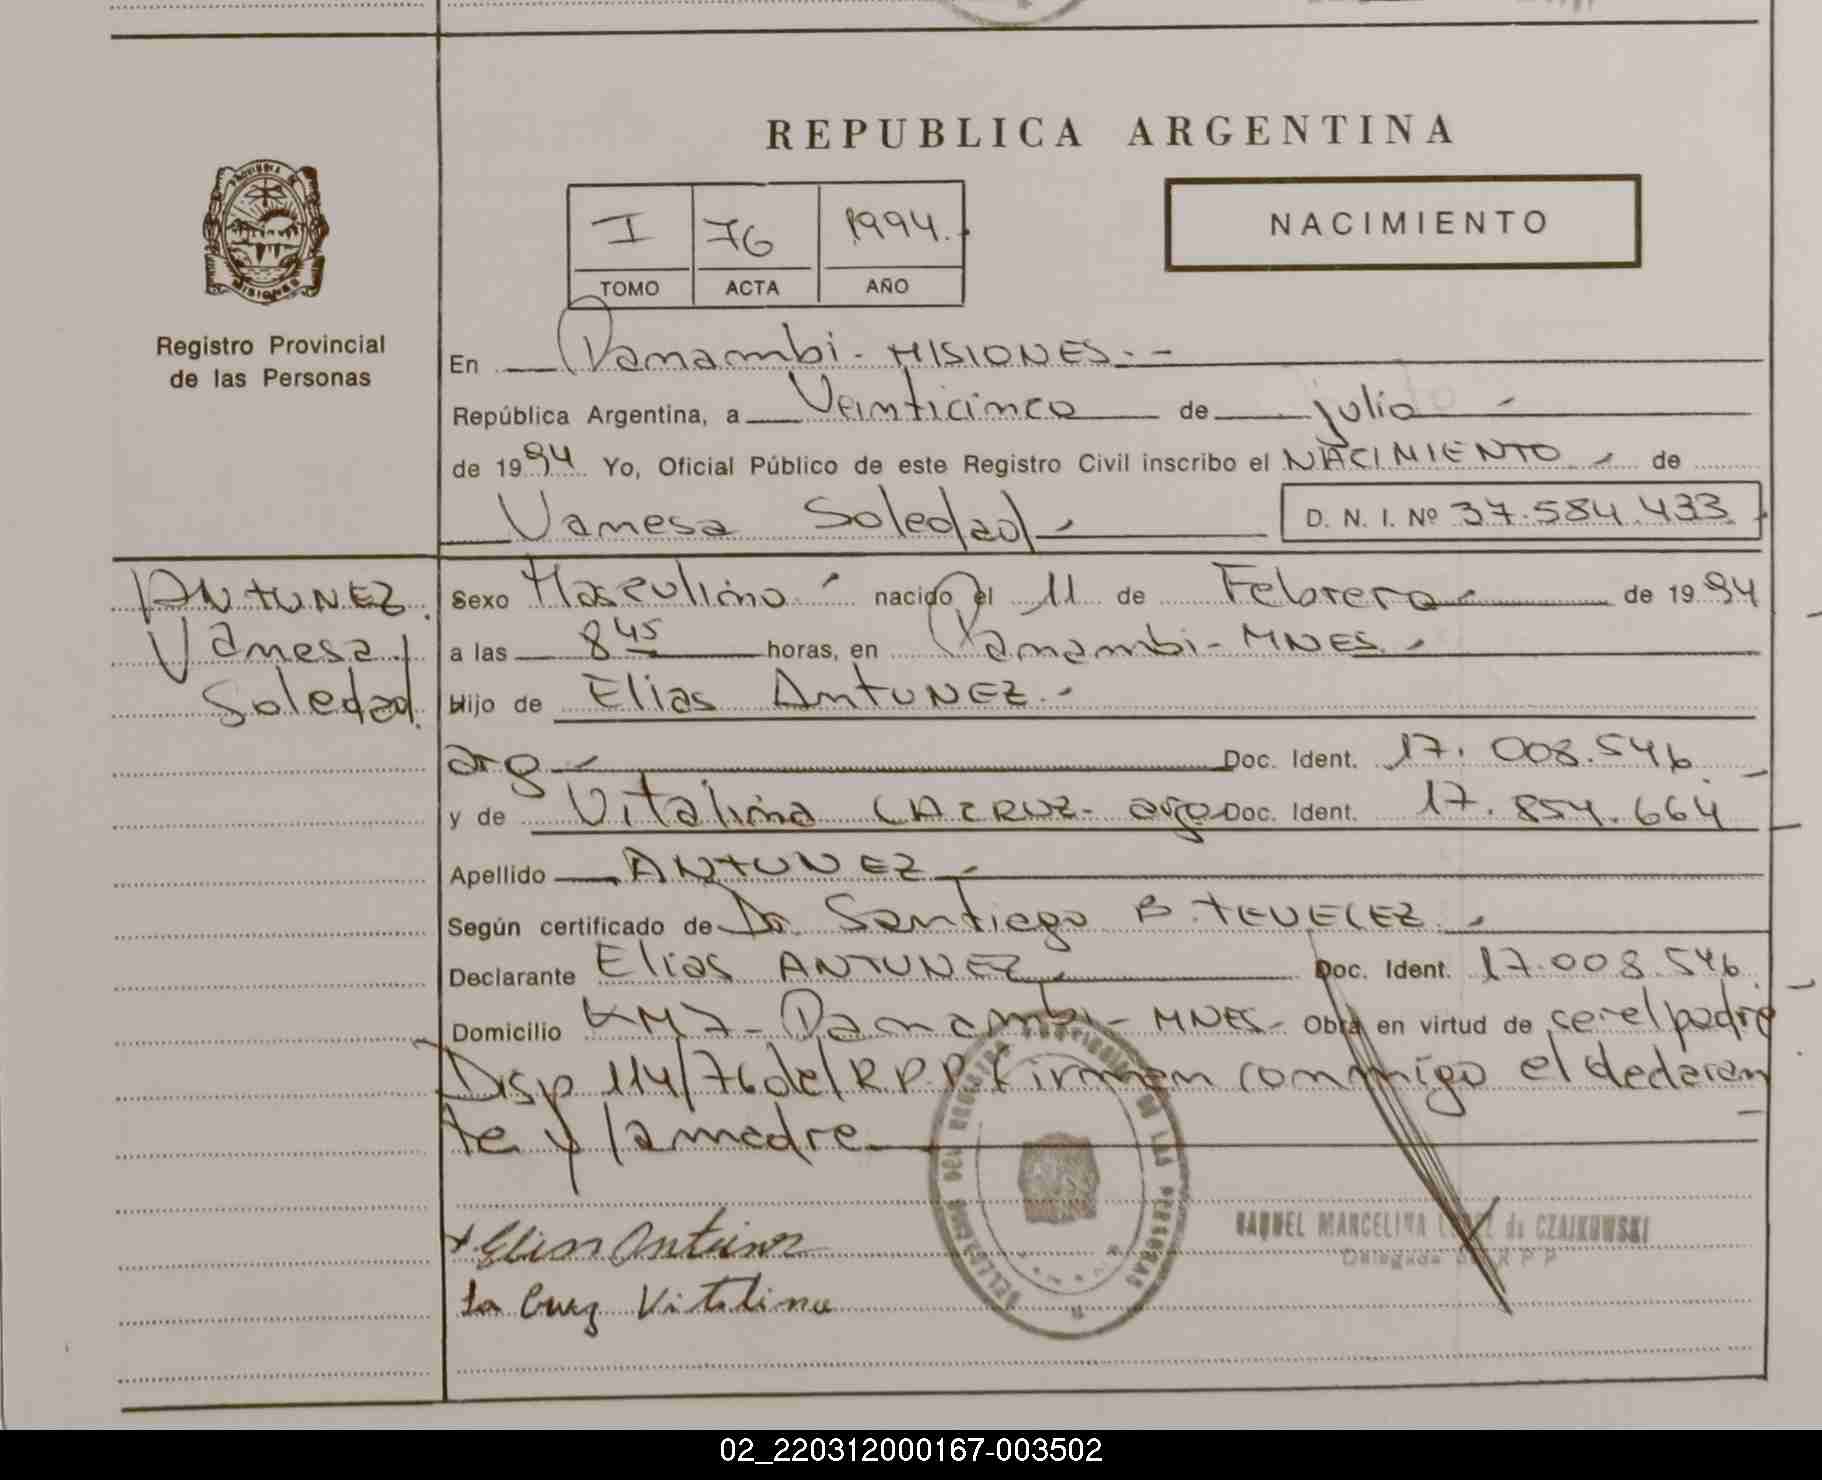 REPUBLICA ARGENTINA
PROVINCIA DE
MISIONES
Registro Provincial
de las Personas
I 76 1994.
TOMO ACTA AÑO
NACIMIENTO
En Panambi - MISIONES. -
República Argentina, a Veinticinco de julio -
de 1994 Yo, Oficial Público de este Registro Civil inscribo el NACIMIENTO - de
Vanesa Soledad - D. N. I. Nº 37.584.433
ANTUNEZ
Vanesa
Soledad.
Sexo Masculino - nacido el 11 de Febrero - de 1994
a las 8 45 horas, en Panambi - MNES. -
Hijo de Elias AntUNEZ. -
arg - Doc. Ident. 17. 008.546. -
y de Vitalina LA CRUZ - arg Doc. Ident. 17. 854. 664 -
Apellido ANTUNEZ -
Según certificado de Dr. Santiago B. -
Declarante Elias ANTUNEZ - Doc. Ident. 17.008.546. -
Domicilio KM 7 - Panambi - MNES - Obra en virtud de ser el padre
Disp 114/76 del R.P.P. firman conmigo el declaran
te y la madre
DELEGACION DEL REGISTRO PROVINCIAL DE LAS PERSONAS
RAQUEL MARCELINA de CZAJKOWSKI
Delegada R P P
Elias Antunez
la Cruz Vitalina
02_220312000167-003502